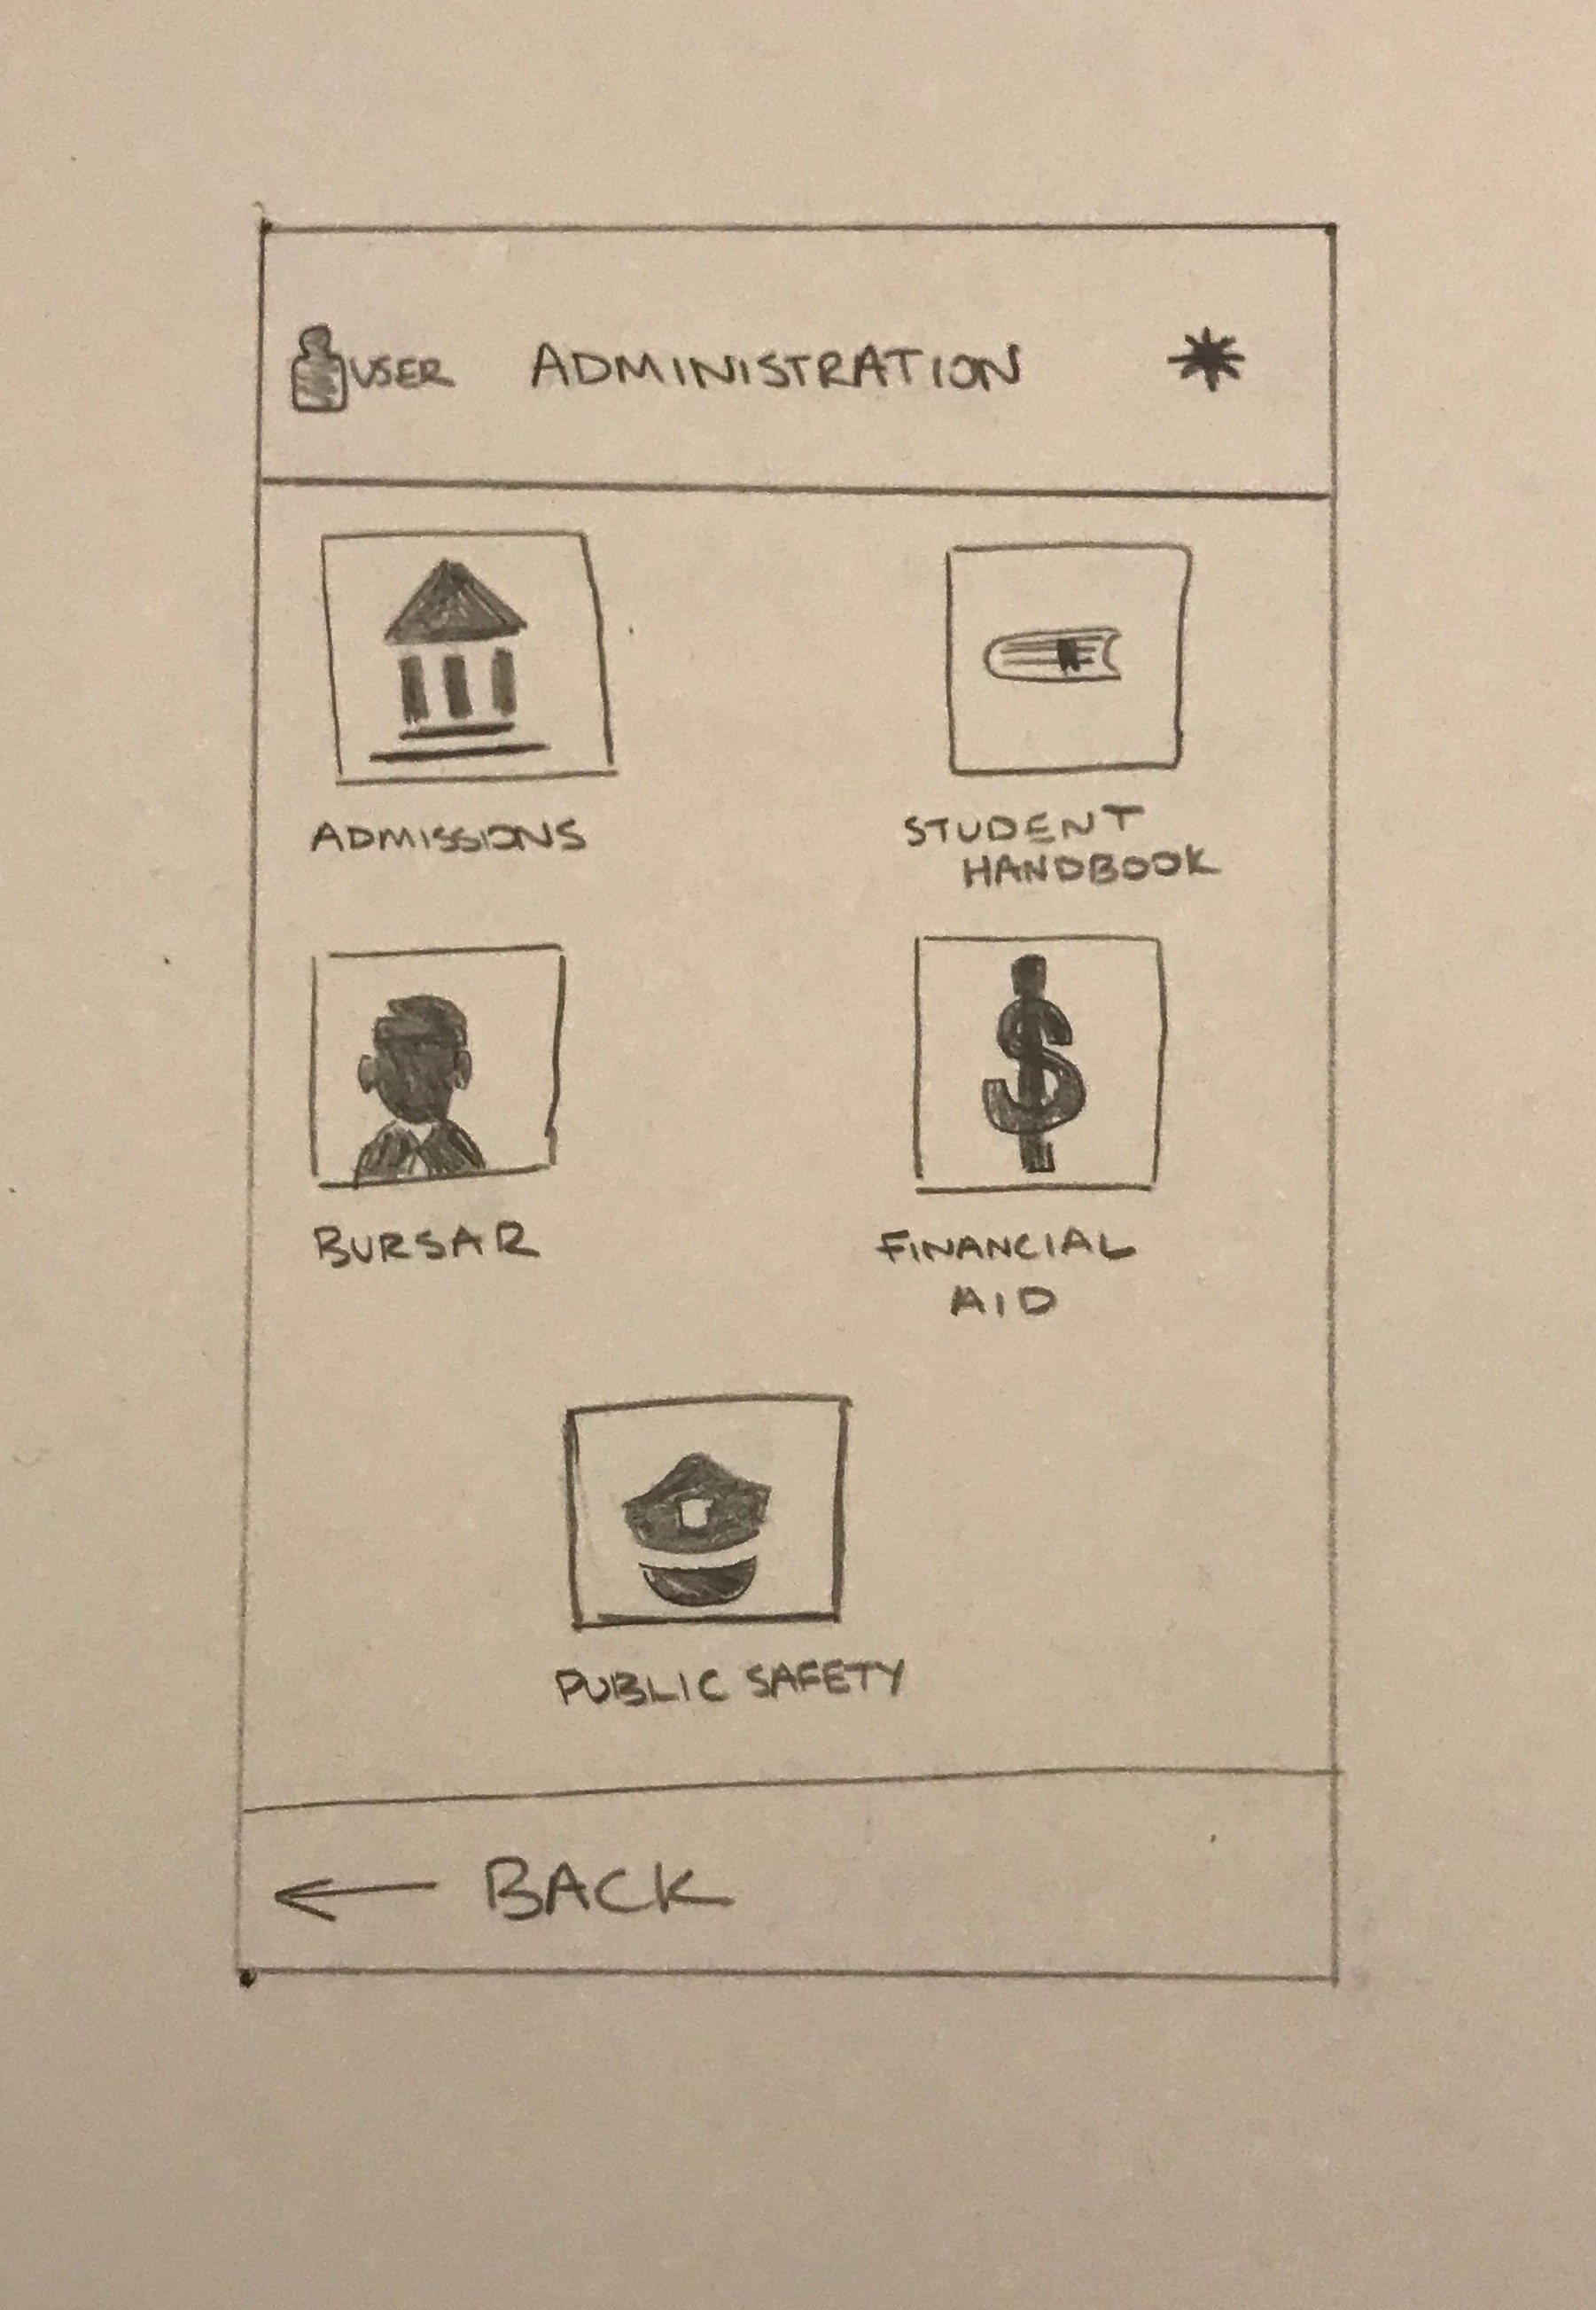 USER ADMINISTRATION
ADMISSIONS
STUDENT
HANDBOOK
BURSAR
FINANCIAL
AID
PUBLIC SAFETY
BACK